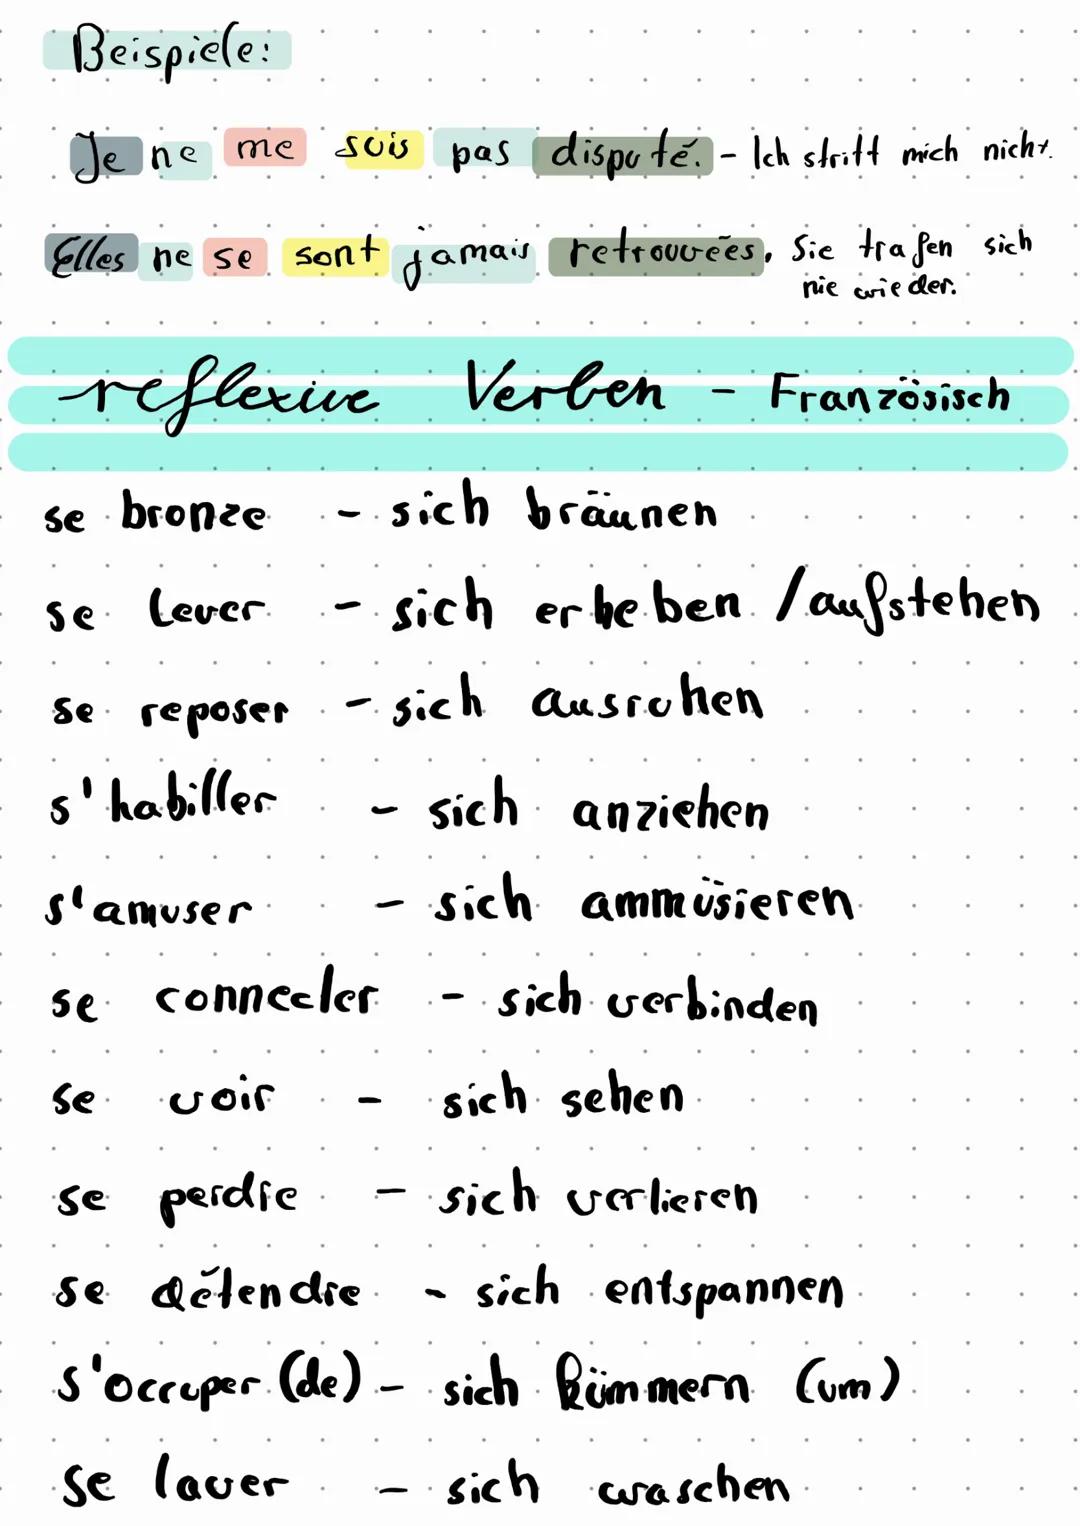 Beispiele:
Je ne me suis pas disputé. - Ich stritt mich nicht.
Elles ne se sont jamais retrouvées. Sie trafen sich
nie wieder.
reflexive Verben - Französisch
se bronze - sich bräunen
se lever - sich erheben /aufstehen
se reposer - sich ausruhen
s'habiller - sich anziehen
s'amuser - sich ammüsieren
se connecter - sich verbinden
se voir - sich sehen
se perdre - sich verlieren
se détendre - sich entspannen
s'occuper (de) - sich kümmern (um)
se laver - sich waschen